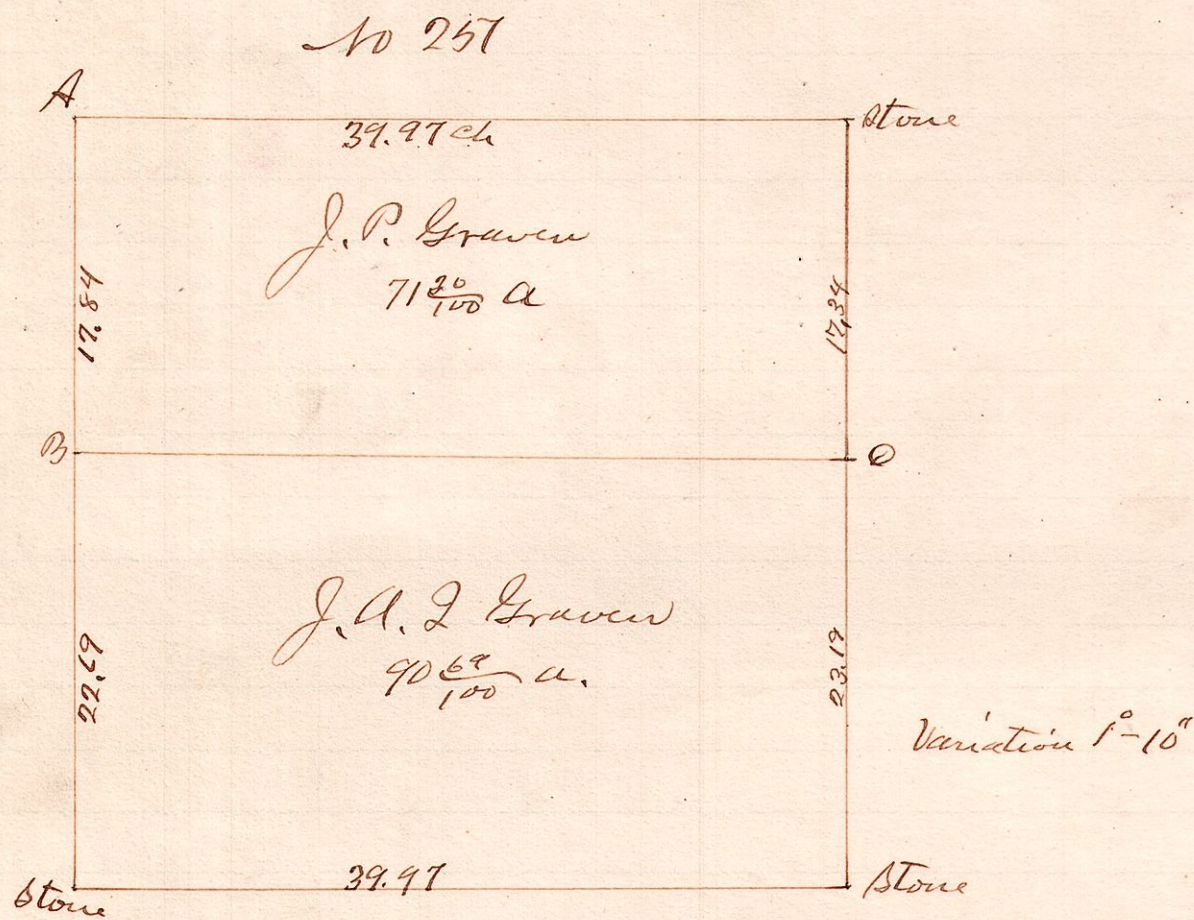 No 257
A
39.97 ch
Stone
J. P. Graven
71 30/100 a
17.84
17.34
B
J. A. Graven
90 69/100 a.
22.69
23.19
Variation 1°-10"
Stone
39.97
Stone